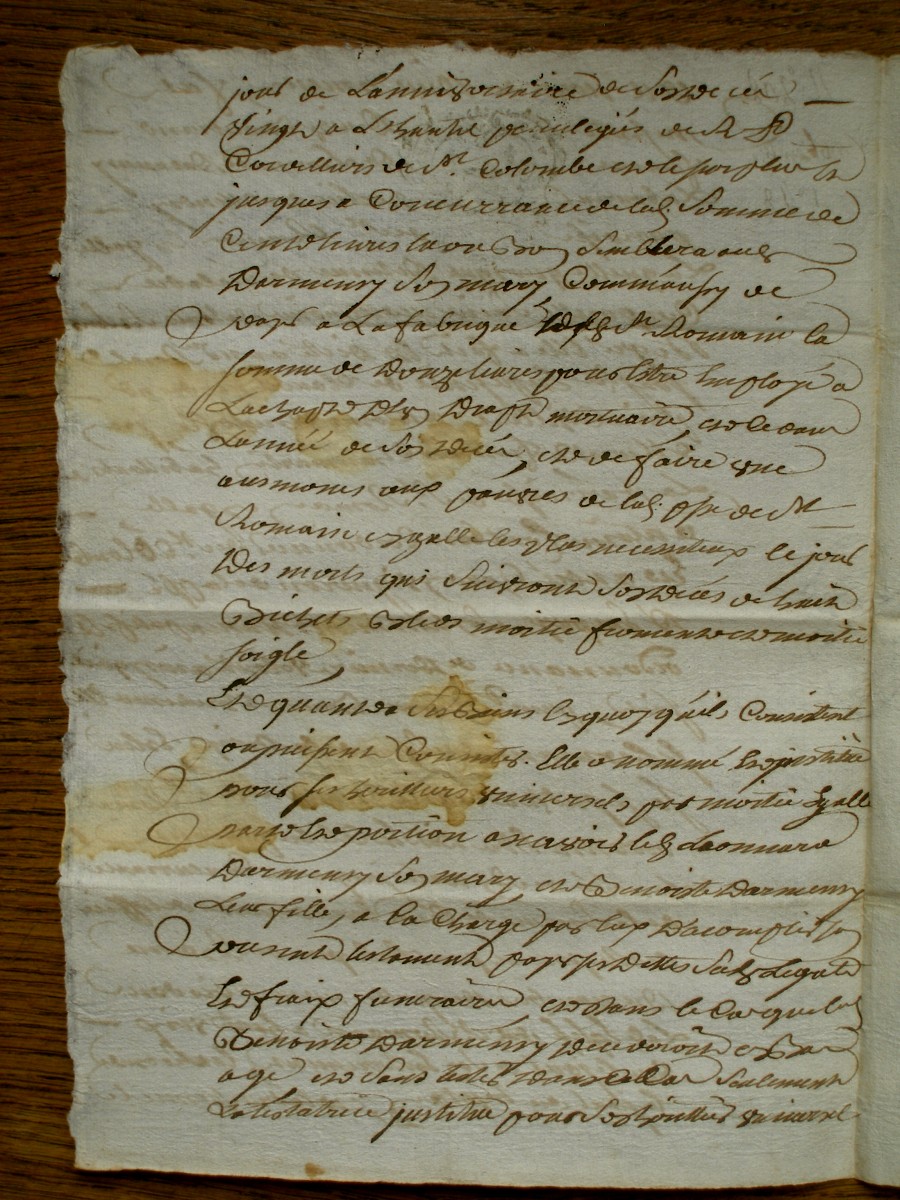 jour de Lanniversaire de son decés
vingt a Lhautel privilegiés de R P
Cordelliers de Ste Colombe et le surplus
jusques a Concurrance de lad. Somme de
Cent livres la ou bon Semblera aud.
Darmensy Son mary
payer a La fabrique dud. St Romain la
somme de Donze livres pour Estre Employé a
Lachapt d'un Drapt mortuaire, et le dans
Lanné de Son decés, et de faire une
ausmones aux pauvres de lad. psse de St
Romain et galle les plus necessiteux le jour
Des morts qui Suivront Son decés de huit
Bichets Bled moitié froment et moitié
soigle
Et quant a Ses biens En quoy qu'ils Consistent
ou puissent Consister. Elle a nommé Et institué
pour Ses heritiers universels par moitié Egalle
part et portion a scavoir led. Leonnard
Darmensy Son mary, et Benoiste Darmensy
Leur fille, a la Charge par Eux D'acomplir son
present testament payer ses dettes Sesd. Legats
Et fraix funeraire, et dans le Cas que lad.
Benoiste Darmensy decederoit en bas
age et sans tester Dans Cas Seulement
La testatrice institue pour Son heritier universel